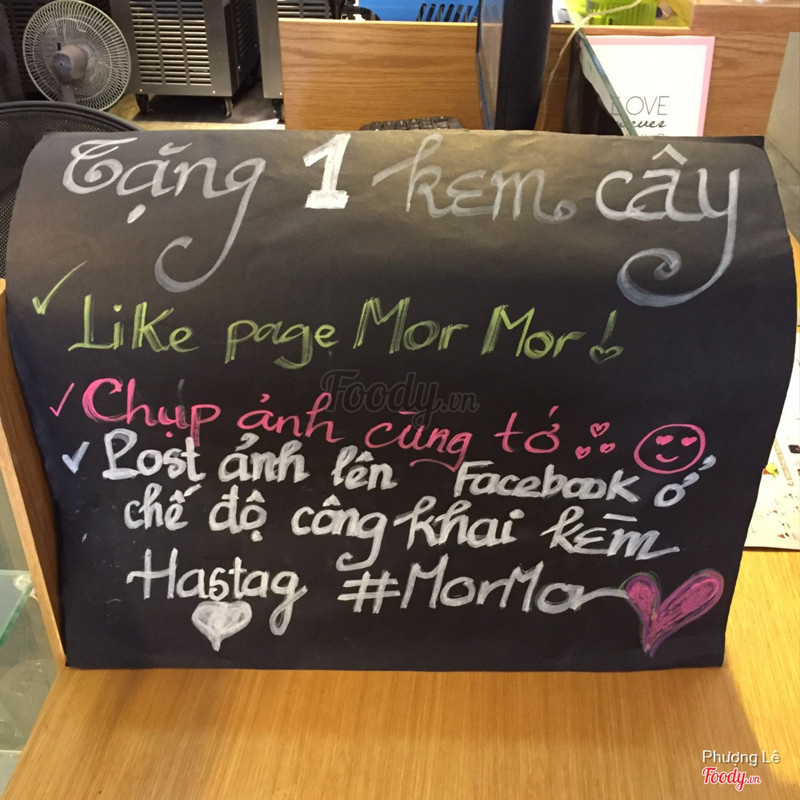 LOVE
Tặng 1 kem cây
Like page Mor Mor!
Chụp ảnh cùng tớ
Post ảnh lên Facebook ở
chế độ công khai kèm
Hastag #MorMor
Foody.vn
Phượng Lê
Foody.vn